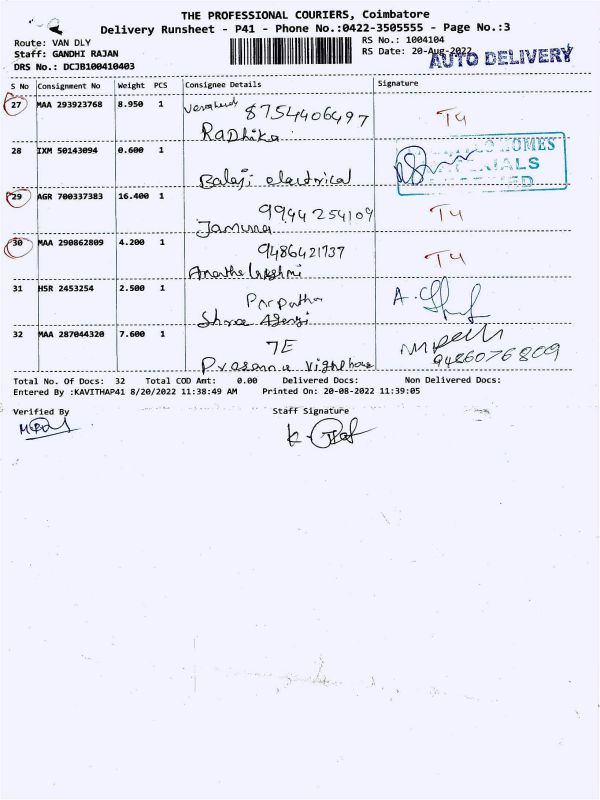 THE PROFESSIONAL COURIERS, Coimbatore
Delivery Runsheet - P41 - Phone No.:0422-3505555 - Page No.:3
Route: VAN DLY
Staff: GANDHI RAJAN
DRS No.: DCJB100410403
RS No.: 1004104
RS Date: 20-Aug-2022
AUTO DELIVERY
S No Consignment No Weight PCS Consignee Details Signature
27 MAA 293923768 8.950 1 8754406497 T4
Radhika
28 IXM 50143094 0.600 1
Balaji electrical
HOMES
29 AGR 700337383 16.400 1 9944254109 T4
Jamuna
30 MAA 290862809 4.200 1 9486421737 T4
31 HSR 2453254 2.500 1
32 MAA 287044320 7.600 1 7E
9486076809
Total No. Of Docs: 32 Total COD Amt: 0.00 Delivered Docs: Non Delivered Docs:
Entered By :KAVITHAP41 8/20/2022 11:38:49 AM Printed On: 20-08-2022 11:39:05
Verified By Staff Signature